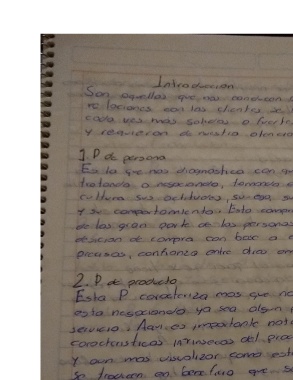 Introducción
Son aquellas que nos conducen
relaciones con los clientes
cada vez más sólidas o fuerte
y requieren de nuestra atenció
1. P de persona
Es la que nos diagnostica con
tratando o negociando, tomando
cultura sus actitudes, su ego, s
y su comportamiento. Esta comp
de las gran parte de las persona
desicion de compra con base a
precesos, confianza entre otros
2. P de producto
Esta P caracteriza mas que n
esta negociando ya sea algun
servicio. Aun es importante not
caracteristicas intrinsecas del pro
y aun mas visualizar como est
se traducen en beneficio que se